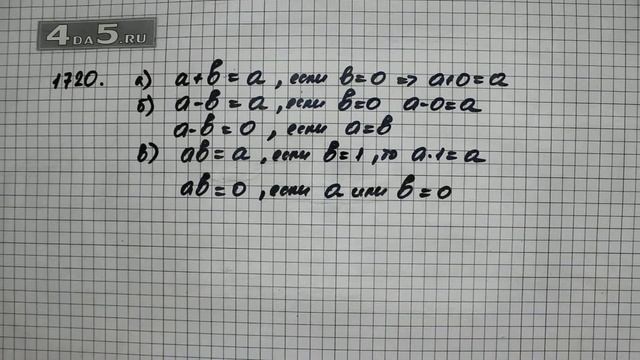 4DA5.RU
1720. а) a+b=a, если b=0 => a+0=a
б) a-b=a, если b=0 a-0=a
a-b=0, если a=b
в) ab=a, если b=1, то a·1=a
ab=0, если a или b=0